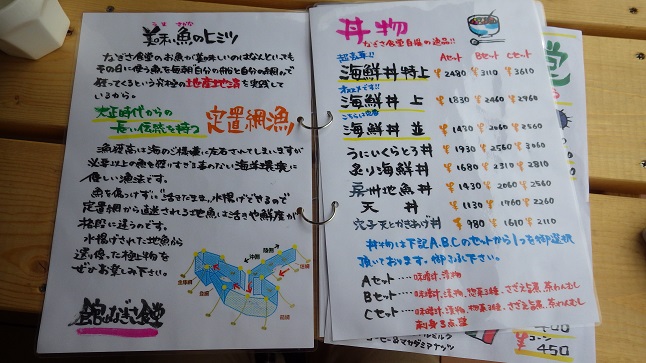 うま さかな
美味い魚のヒミツ
なぎさ食堂のお魚が美味しいのはなんといっても
その日に使う魚を毎朝自分の船と自分の網で
獲ってくるという究極の地産地消を実践して
いるから。
大正時代からの
長い伝統を持つ
定置網漁
漁獲高は海のご機嫌に左右されてしまいますが
必要以上の魚を獲りすぎる事のない海洋環境に
優しい漁法です。
魚を傷つけずに"活きたまま"水揚げできるので
定置網から直送される地魚は活きや鮮度が
格段に違うのです。
水揚げされた地魚から
選り優った極上物を
ぜひお楽しみ下さい。
館山なぎさ食堂
丼物
なぎさ食堂自慢の逸品!!
Aセット Bセット Cセット
超豪華!!
海鮮丼特上 ¥2480 ¥3110 ¥3610
オススメです!!
海鮮丼 上 ¥1830 ¥2460 ¥2960
こちらは定番
海鮮丼 並 ¥1430 ¥2060 ¥2560
うにいくらとろ丼 ¥1930 ¥2560 ¥3060
炙り海鮮丼 ¥1680 ¥2310 ¥2810
房州地魚丼 ¥1430 ¥2060 ¥2560
天丼 ¥1130 ¥1760 ¥2260
穴子天とかきあげ丼 ¥980 ¥1610 ¥2110
丼物は下記A.B.Cのセットから1つを御選択
頂いております。御了承下さい。
Aセット……味噌汁、漬物
Bセット……味噌汁、漬物、惣菜3種、さざえ旨煮、茶わんむし
Cセット……味噌汁、漬物、惣菜3種、さざえ旨煮、茶わんむし
刺身3点盛
400
¥450